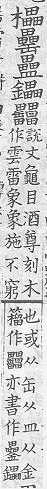 櫑罍𥃇鑘𤳳
說文龜目酒尊刻木
作雲雷象象施不窮
也或从缶从皿从金
籀作𤳳亦書作